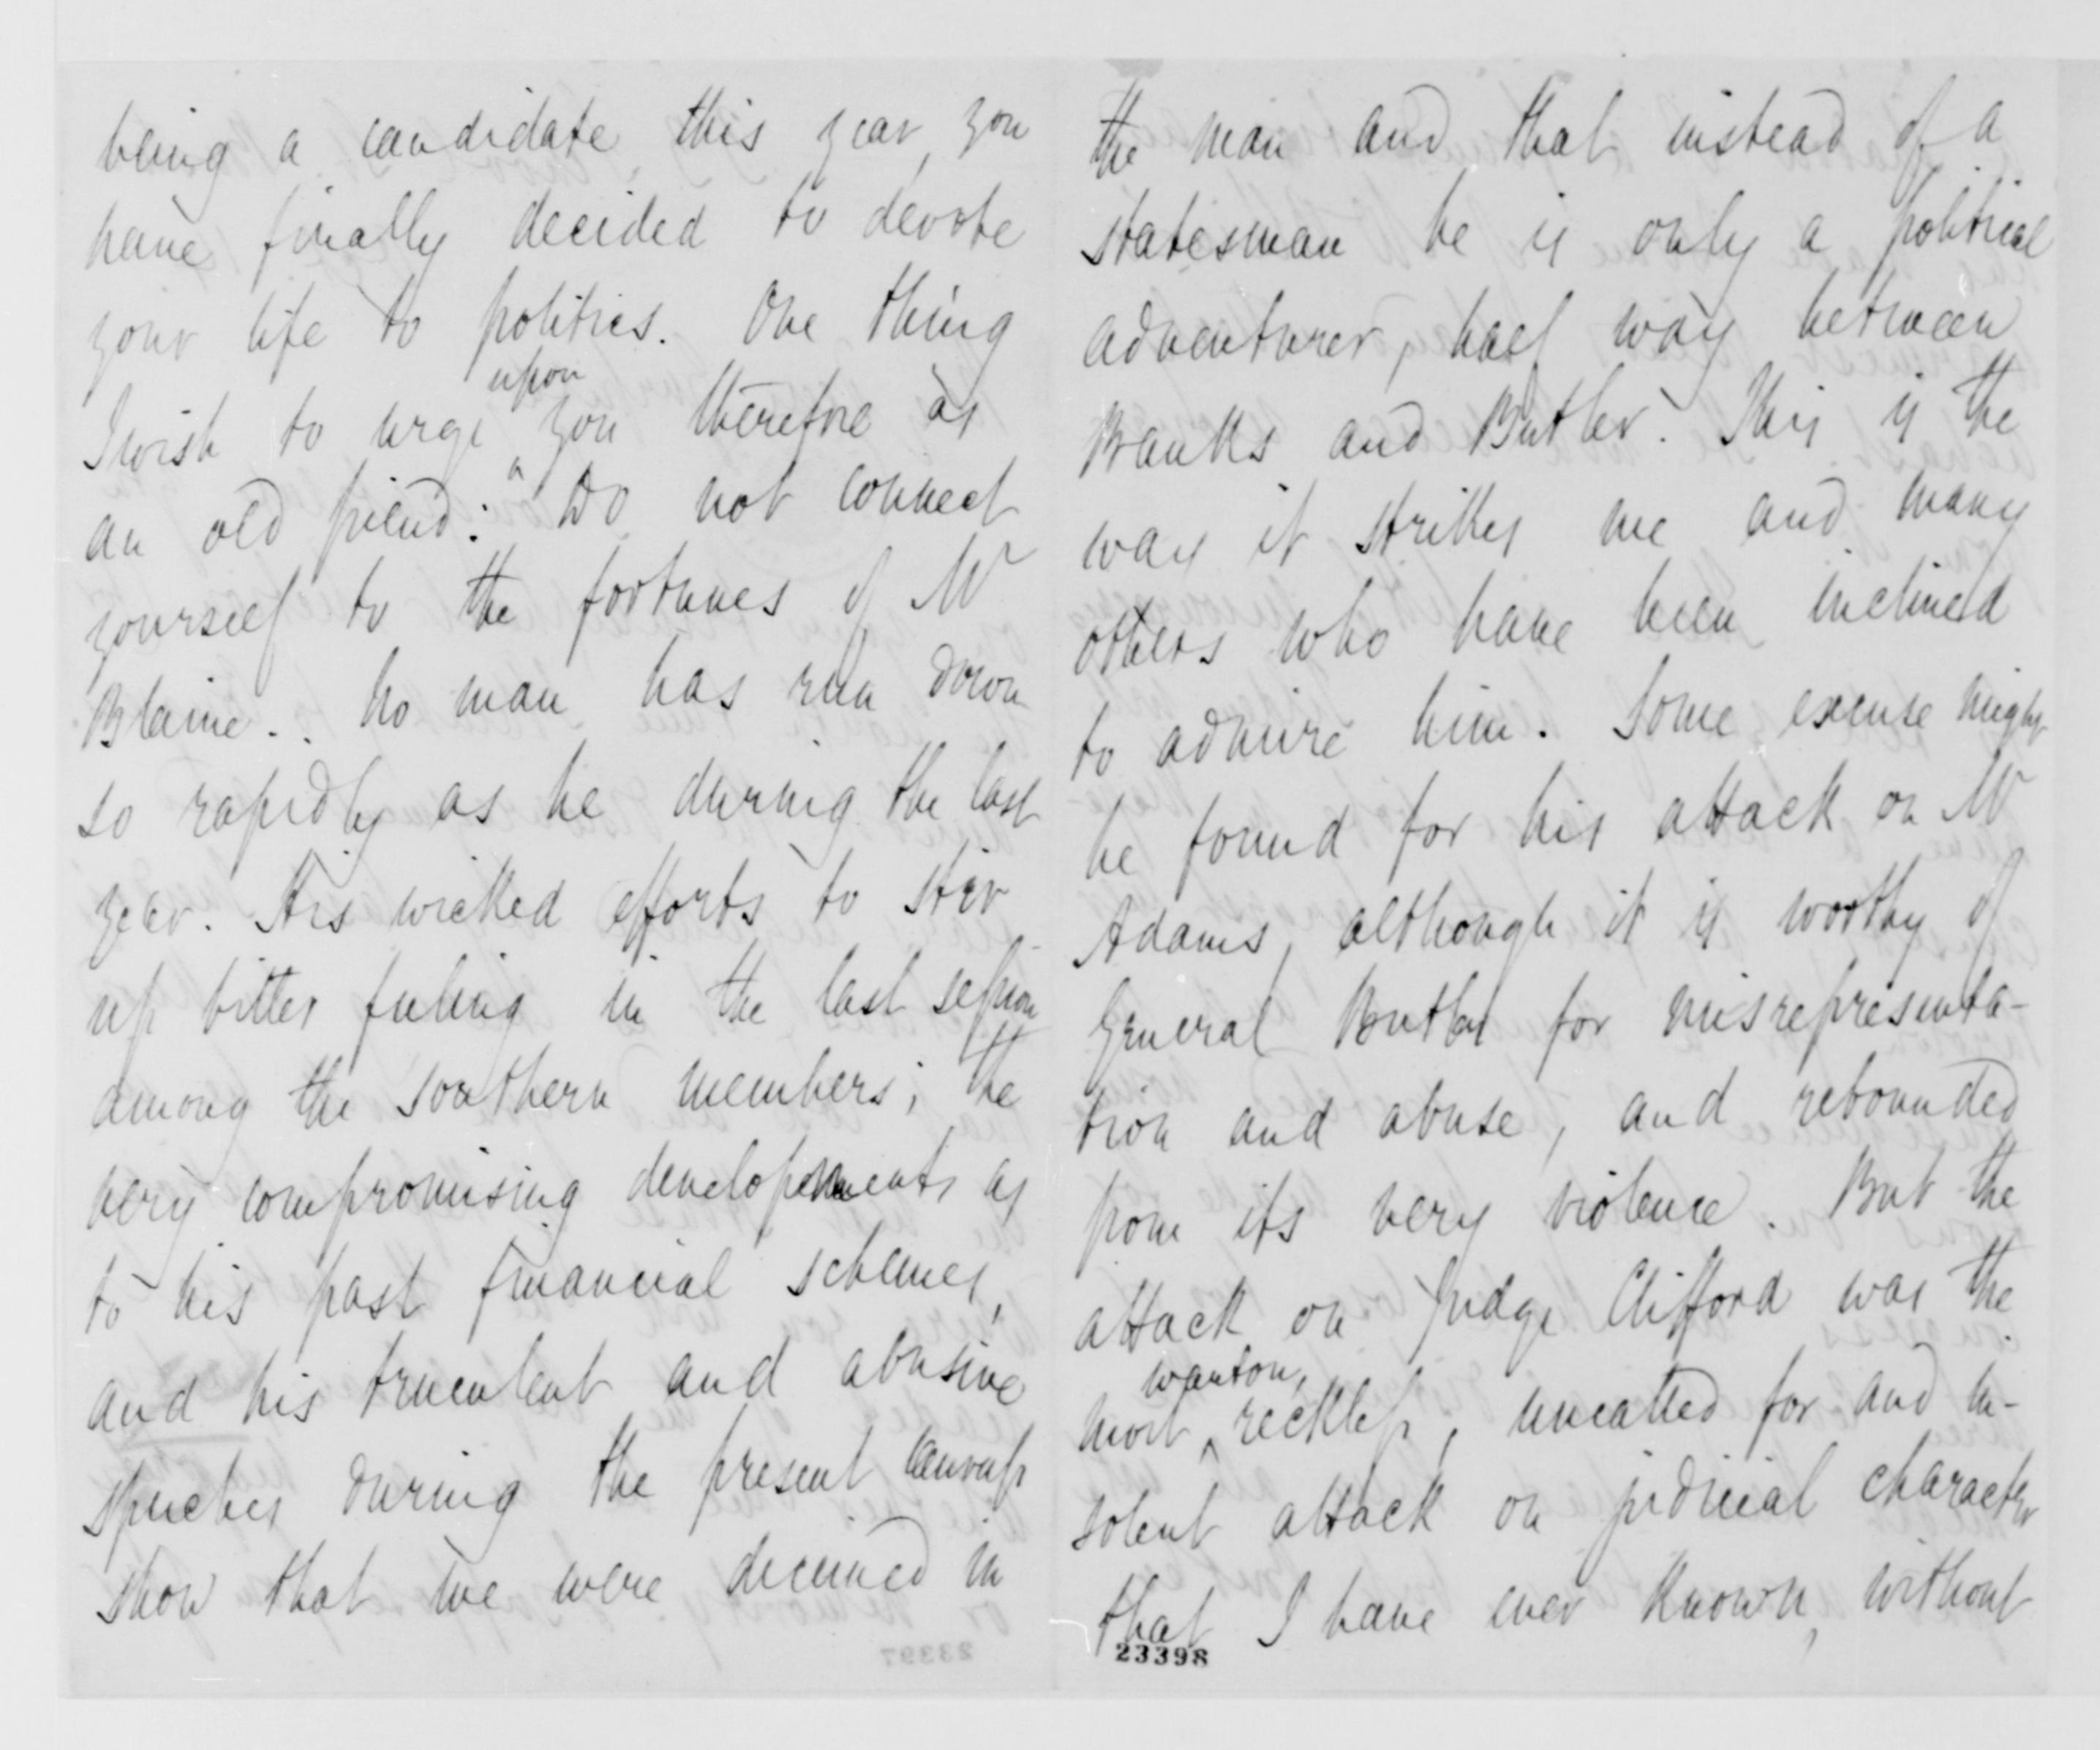 being a candidate this year, you
have finally decided to devote
your life to politics. One thing
upon
I wish to urge you therefore as
an old friend: Do not connect
yourself to the fortunes of Mr
Blaine. No man has run down
so rapidly as he during the last
year. His wicked efforts to stir
up bitter feeling in the last session
among the Southern members; the
very compromising developments as
to his past financial schemes,
and his truculent and abusive
speeches during the present canvass
show that we were deceived in
23397
the man and that instead of a
statesman he is only a political
adventurer, half way between
Banks and Butler. This is the
way it strikes me and many
others who have been inclined
to admire him. Some excuse might
be found for his attack on Mr
Adams, although it is worthy of
General Butler for misrepresenta-
tion and abuse, and rebounded
from its very violence. But the
attack on Judge Clifford was the
wanton,
most reckless, uncalled for and in-
solent attack on judicial character
that I have ever known, without
23398